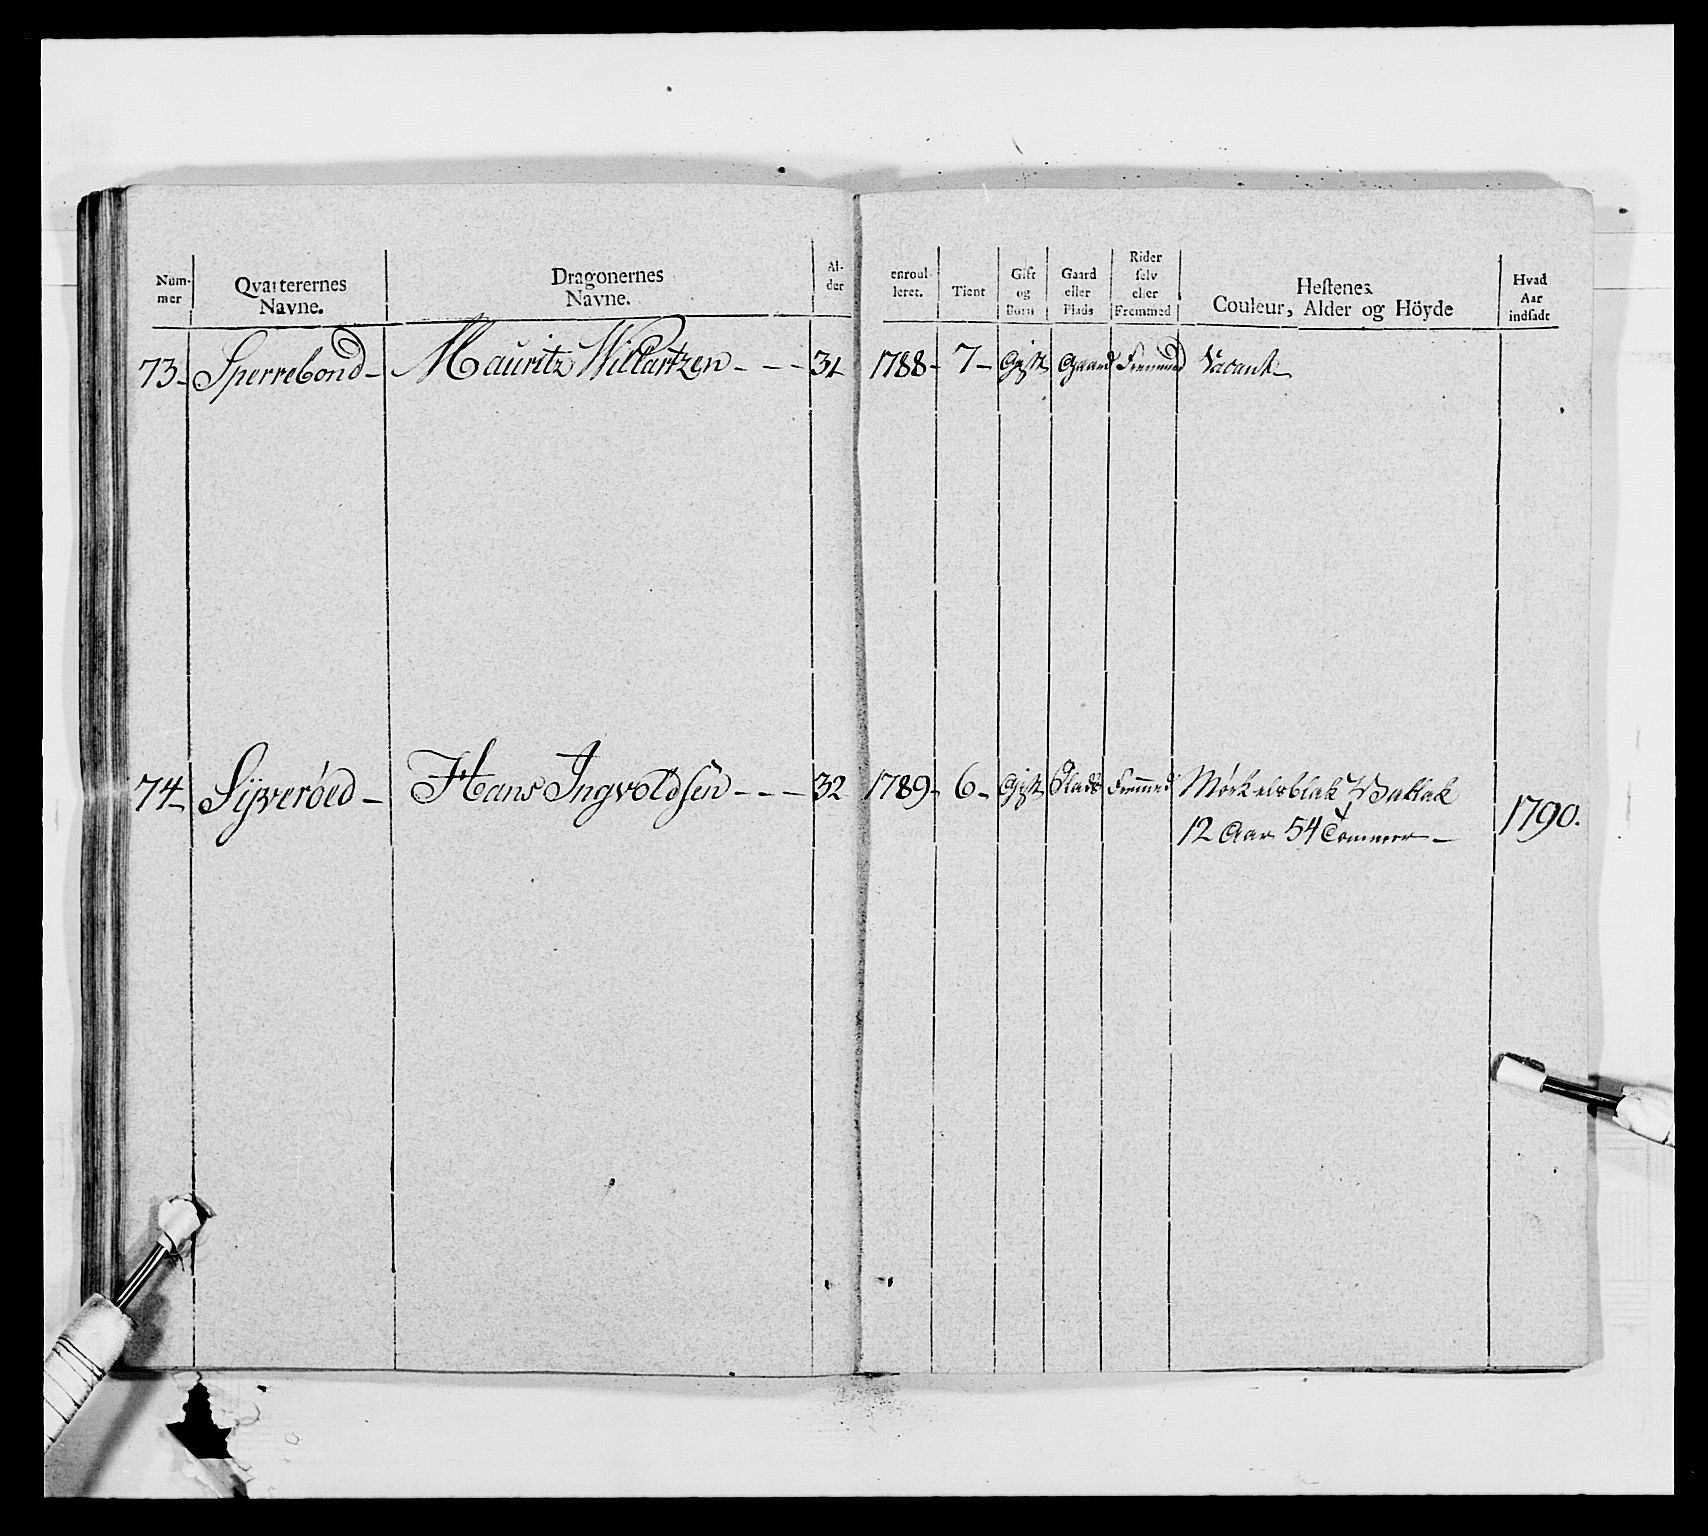 Num-
mer
Qvarterernes
Navne.
Dragonernes
Navne.
Al-
der
enroul-
leret.
Tient
Gift
og
Börn
Gaard
eller
Plads
Rider
selv
eller
Fremmed
Hestenes
Couleur, Alder og Höyde
Hvad
Aar
indsadt
73 - Sperrebond - Mauritz Willartzen - - - 31 1788 - 7 - Gift Gaard Fremmed Vacant -
74 - Sÿveröed - Hans Ingvoldsen - - - 32 1789 - 6 - Gift Plads Fremmed Mörkelsblak Vallak
12 Aar 54 Tommer - 1790.